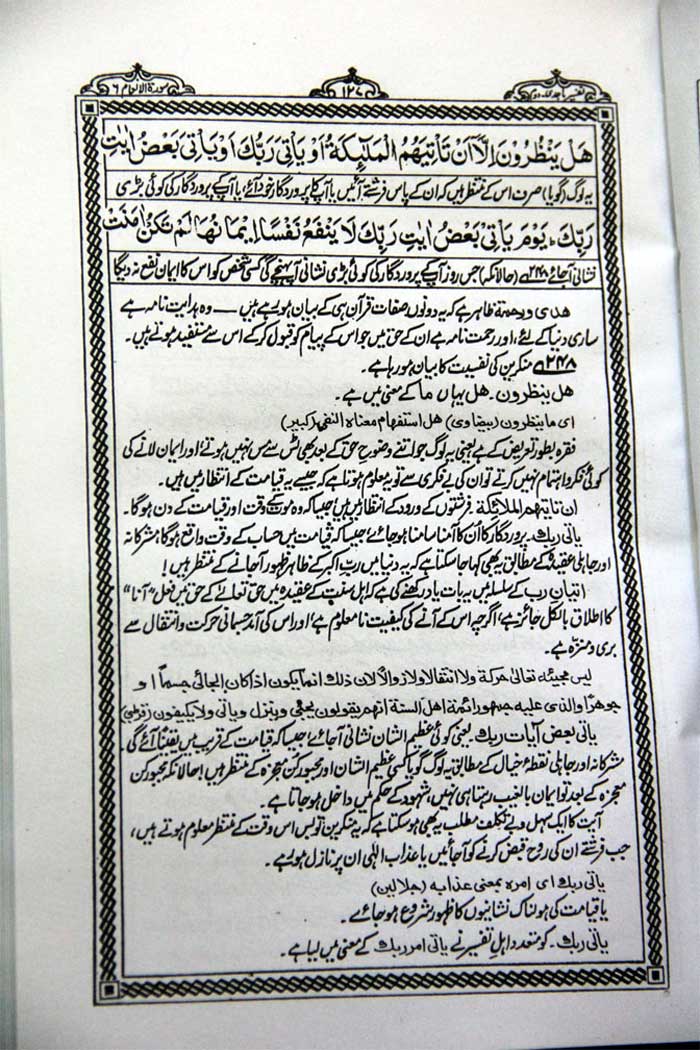 تفسیر ماجدی جلد دوم
۱۲۷
سورۃ الانعام ۶
هَلْ يَنْظُرُوْنَ اِلَّاۤ اَنْ تَاْتِيَهُمُ الْمَلٰٓئِكَةُ اَوْ يَاْتِىَ رَبُّكَ اَوْ يَاْتِىَ بَعْضُ اٰيٰتِ
یہ لوگ (گویا) صرف اس کے منتظر ہیں کہ ان کے پاس فرشتے آئیں یا آپ کا پروردگار خود آئے، یا آپ کے پروردگار کی کوئی بڑی
رَبِّكَ ؕ يَوْمَ يَاْتِىْ بَعْضُ اٰيٰتِ رَبِّكَ لَا يَنْفَعُ نَفْسًا اِيْمَانُهَا لَمْ تَكُنْ اٰمَنَتْ
نشانی آجائے ۲۴۸ (حالانکہ) جس روز آپ کے پروردگار کی کوئی بڑی نشانی آپہنچے گی کسی شخص کو اس کا ایمان نفع نہ دیگا
ھدی ورحمۃ ظاہر ہے کہ یہ دونوں صفات قرآن ہی کے بیان ہورہے ہیں — وہ ہدایت نامہ ہے
ساری دنیا کے لئے، اور رحمت نامہ ہے ان کے حق میں جو اس کے پیام کو قبول کرکے اس سے مستفید ہوتے ہیں۔
۲۴۸ منکرین کی نفسیت کا بیان ہو رہا ہے۔
ھل ینظرون۔ ھل یہاں ما کے معنی میں ہے۔
ای ما ینظرون (بیضاوی) ھل استفھام معناہ النفی (کبیر)
فقرہ بطور تعریض کے ہے یعنی یہ لوگ جو اتنے وضوح حق کے بعد بھی ٹس سے مس نہیں ہوتے اور ایمان لانے کی
کوئی فکر و اہتمام نہیں کرتے تو ان کی بے فکری سے تو یہ معلوم ہوتا ہے کہ جیسے یہ قیامت کے انتظار میں ہیں۔
ان تاتیھم الملائکۃ۔ فرشتوں کے ورود کے انتظار میں ہیں! جیسا کہ وہ موت کے وقت اور قیامت کے دن ہوگا۔
یاتی ربک۔ پروردگار کا ان کا آمنا سامنا ہوجائے، جیسا کہ قیامت میں حساب کے وقت واقع ہوگا، مشرکانہ
اور جاہلی عقیدہ کے مطابق یہ بھی کہا جاسکتا ہے کہ یہ دنیا میں ربّ اکبر کے ظاہر ظہور آجانے کے منتظر ہیں!
اتیان رب کے سلسلہ میں یہ بات یاد رکھنے کی ہے کہ اہل سنت کے عقیدہ میں حق تعالےٰ کے حق میں فعل "آنا"
کا اطلاق بالکل جائز ہے، اگرچہ اس کے آنے کی کیفیت نامعلوم ہے، اور اس کی آمد جسمانی حرکت و انتقال سے
بری و منزّہ ہے۔
لیس مجیئہ تعالیٰ حرکۃ ولا انتقالا ولا زوالا لان ذلک انما یکون اذا کان الجائی جسما او
جوھرا والذی علیہ جمھور ائمۃ اھل السنۃ انھم یقولون یجئ وینزل ویاتی ولا یکیفون (قرطبی)
یاتی بعض آیات ربک یعنی کوئی عظیم الشان نشانی آجائے! جیسا کہ قیامت کے قریب میں یقیناً آئے گی۔
مشرکانہ اور جاہلی نقطۂ خیال کے مطابق یہ لوگ گویا کسی عظیم الشان اور مجبور کن معجزہ کے منتظر ہیں! حالانکہ مجبور کن
معجزہ کے بعد تو ایمان بالغیب رہتا ہی نہیں، شہود کے حکم میں داخل ہوجاتا ہے۔
آیت کا ایک سہل و بے تکلف مطلب یہ بھی ہوسکتا ہے کہ یہ منکرین تو بس اس وقت کے منتظر معلوم ہوتے ہیں،
جب فرشتے ان کی روح قبض کرنے کو آجائیں یا عذاب الٰہی ان پر نازل ہورہے۔
یاتی ربک ای امرہ بمعنی عذابہ (جلالین)
یا قیامت کی ہولناک نشانیوں کا ظہور شروع ہوجائے۔
یاتی ربک۔ کو متعدد اہل تفسیر نے یاتی امر ربک کے معنی میں لیا ہے۔